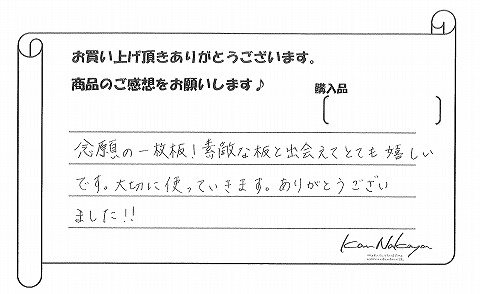 お買い上げ頂きありがとうございます。
商品のご感想をお願いします♪
購入品
念願の一枚板！素敵な板と出会えてとても嬉しい
です。大切に使っていきます。ありがとうござい
ました!!
Kan Nakaya